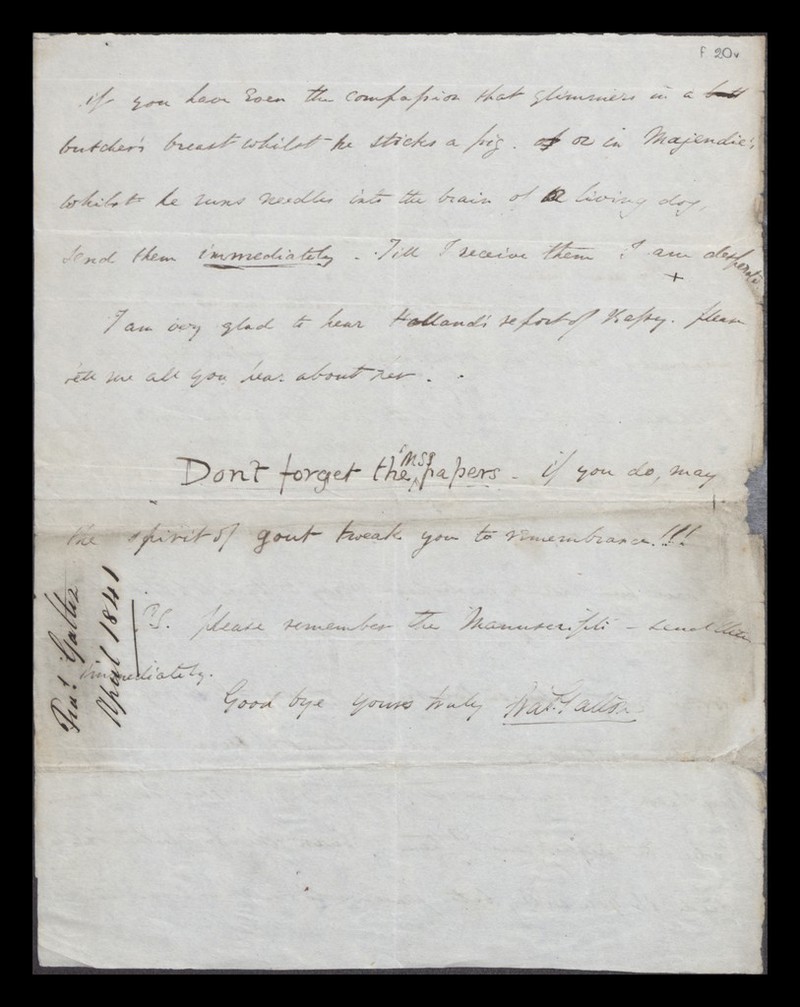 F 20v
if you have Even the compassion that glimmers in a butt
butcher's breast whilst he sticks a pig. of or in Majendie's,
whilst he runs needles into the brain of a living dog,
send them immediately - Till I receive them I am desperate
+
I am very glad to hear Holland's report of Bessy. please
tell me all you hear about her.
MSS
Dont forget the papers - if you do, may
the spirit of gout tweak you to remembrance!!!
P.S. please remember the Manuscripts - send them
immediately.
Good bye yours truly Fras. Galton
Fras. Galton
April 1841